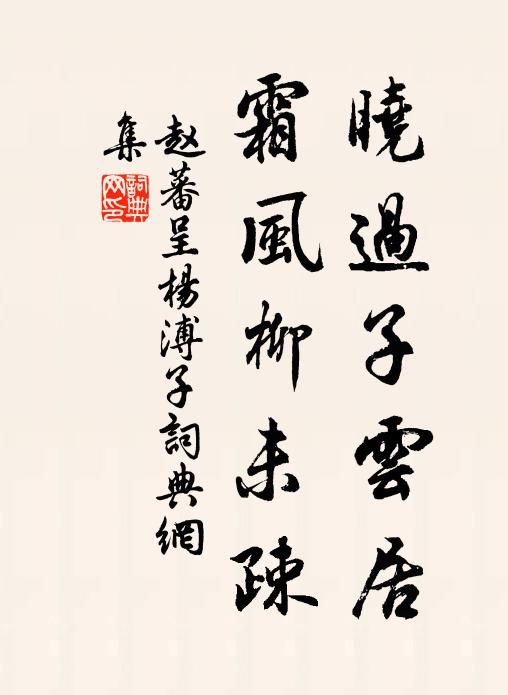 曉過子雲居
霜風柳未疎
赵蕃呈楊溥子詞典網
集
詞典網印